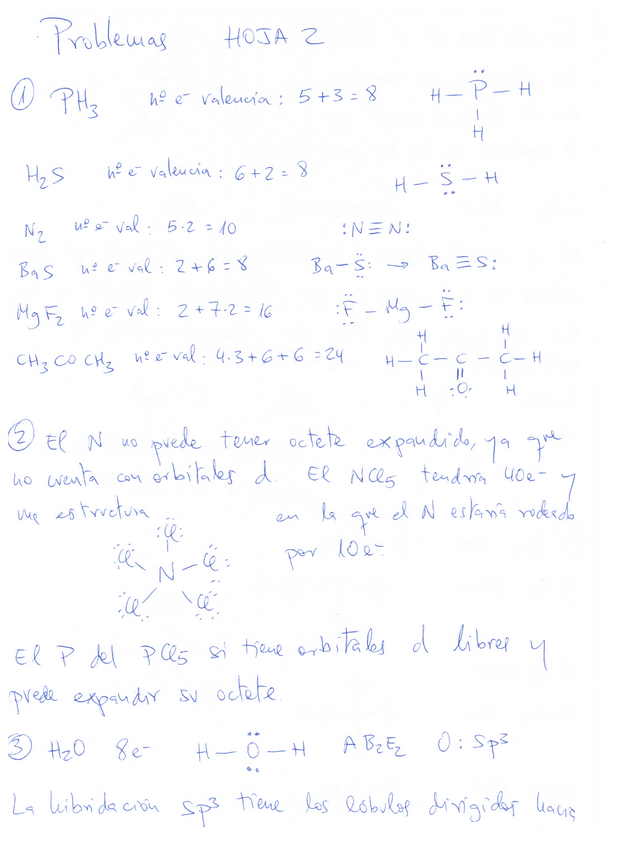 Problemas HOJA 2
① PH₃ nº e⁻ valencia : 5+3=8 H–P̈–H
H
H₂S nº e⁻ valencia : 6+2=8 H–S̈–H
N₂ nº e⁻ val : 5·2=10 :N≡N:
BaS nº e⁻ val : 2+6=8 Ba–S̈: → Ba≡S:
MgF₂ nº e⁻ val : 2+7·2=16 :F̈–Mg–F̈:
H H
CH₃COCH₃ nº e⁻ val : 4·3+6+6=24 H–C–C–C–H
H :O: H
② El N no puede tener octete expandido, ya que
no cuenta con orbitales d. El NCl₅ tendría 40e⁻ y
una estructura en la que el N estaría rodeado
:Cl: por 10e⁻.
:Cl Cl:
N
:Cl Cl:
El P del PCl₅ si tiene orbitales d libres y
puede expandir su octete.
③ H₂O 8e⁻ H–Ö–H AB₂E₂ O: Sp³
La hibridación sp³ tiene los lóbulos dirigidos hacia